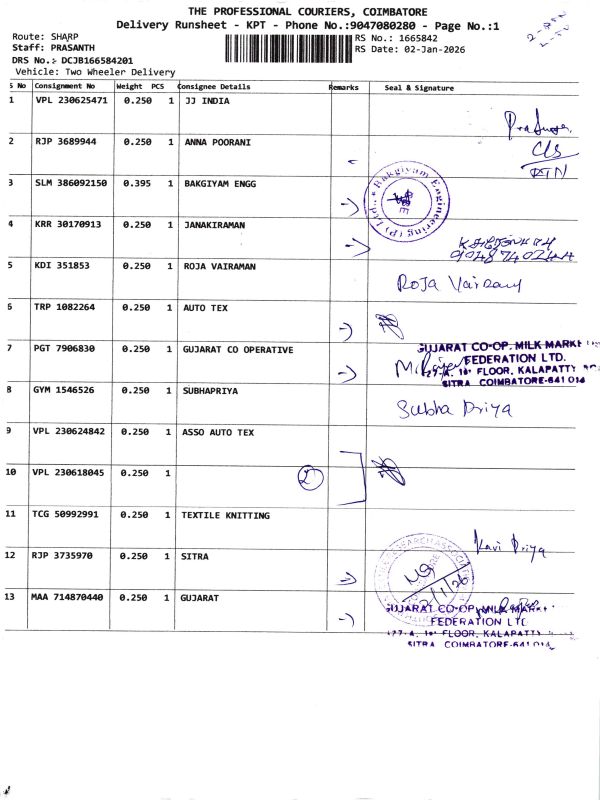 THE PROFESSIONAL COURIERS, COIMBATORE
Delivery Runsheet - KPT - Phone No.:9047080280 - Page No.:1
Route: SHARP
RS No.: 1665842
Staff: PRASANTH
RS Date: 02-Jan-2026
DRS No.:- DCJB166584201
Vehicle: Two Wheeler Delivery
S No Consignment No Weight PCS Consignee Details Remarks Seal & Signature
1 VPL 230625471 0.250 1 JJ INDIA
2 RJP 3689944 0.250 1 ANNA POORANI
3 SLM 386092150 0.395 1 BAKGIYAM ENGG
Bakgiyam Engineering (P) Ltd.,
4 KRR 30170913 0.250 1 JANAKIRAMAN
5 KDI 351853 0.250 1 ROJA VAIRAMAN
Roja Vairamy
6 TRP 1082264 0.250 1 AUTO TEX
7 PGT 7906830 0.250 1 GUJARAT CO OPERATIVE
GUJARAT CO-OP. MILK MARK
FEDERATION LTD.
FLOOR, KALAPATTY
SITRA COIMBATORE-641 014
8 GYM 1546526 0.250 1 SUBHAPRIYA
Subha Priya
9 VPL 230624842 0.250 1 ASSO AUTO TEX
10 VPL 230618045 0.250 1
2
11 TCG 50992991 0.250 1 TEXTILE KNITTING
Kavi Priya
12 RJP 3735970 0.250 1 SITRA
2/1/26
13 MAA 714870440 0.250 1 GUJARAT
GUJARAT CO-OP. MILK MARK
FEDERATION LTD
FLOOR, KALAPATTY
SITRA COIMBATORE-641 014